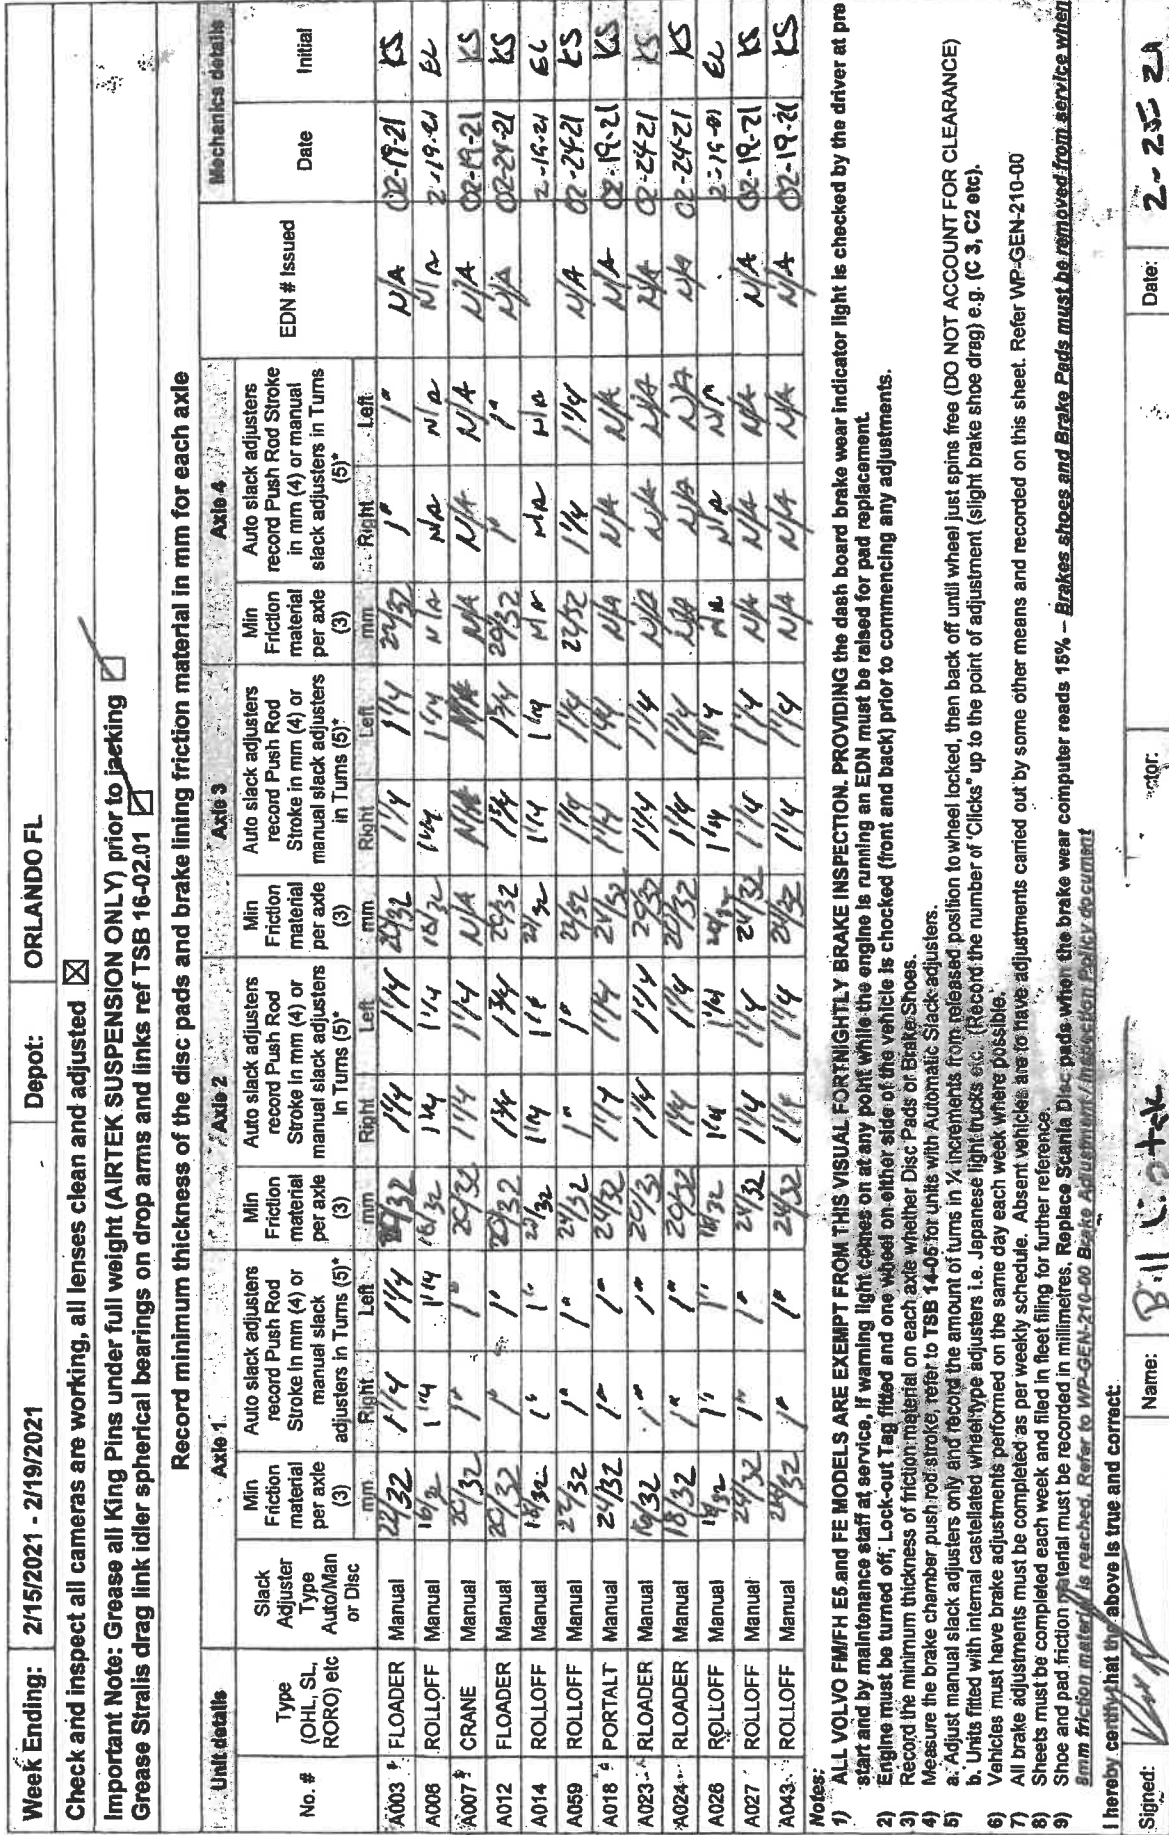 Week Ending: 2/15/2021 - 2/19/2021 Depot: ORLANDO FL
Check and inspect all cameras are working, all lenses clean and adjusted ☒
Important Note: Grease all King Pins under full weight (AIRTEK SUSPENSION ONLY) prior to jacking ☐
Grease Stralis drag link idler spherical bearings on drop arms and links ref TSB 16-02.01 ☑
Record minimum thickness of the disc pads and brake lining friction material in mm for each axle
Unit details Axle 1 Axle 2 Axle 3 Axle 4 Mechanics details
No. # Type (OHL, SL, RORO) etc Slack Adjuster Type Auto/Man or Disc Min Friction material per axle (3) Auto slack adjusters record Push Rod Stroke in mm (4) or manual slack adjusters in Turns (5)* Min Friction material per axle (3) Auto slack adjusters record Push Rod Stroke in mm (4) or manual slack adjusters in Turns (5)* Min Friction material per axle (3) Auto slack adjusters record Push Rod Stroke in mm (4) or manual slack adjusters in Turns (5)* Min Friction material per axle (3) Auto slack adjusters record Push Rod Stroke in mm (4) or manual slack adjusters in Turns (5)* EDN # Issued Date Initial
mm Right Left mm Right Left mm Right Left mm Right Left
A003 FLOADER Manual 22/32 1 1/4 1 1/4 1 1/4 1 1/4 20/32 1 1/4 1 1/4 22/32 1" 1" N/A 02-19-21 KS
A006 ROLLOFF Manual 1 1/4 1 1/4 16/32 1 1/4 1 1/4 16/32 1 1/4 1 1/4 N/A N/A N/A N/A 2-19-21 EL
A007 CRANE Manual 20/32 1" 1" 20/32 1 1/4 1 1/4 N/A N/A N/A N/A N/A N/A N/A 02-19-21 KS
A012 FLOADER Manual 20/32 1" 1" 20/32 1 3/4 1 3/4 20/32 1 3/4 1 3/4 20/32 1" 1" N/A 02-24-21 KS
A014 ROLLOFF Manual 18/32 1" 1" 22/32 1 1/4 22/32 1 1/4 1 1/4 N/A N/A N/A 2-19-21 EL
A059 ROLLOFF Manual 22/32 1" 1" 24/32 1" 1" 22/32 1 1/4 1 1/4 22/32 1 1/4 1 1/4 N/A 02-24-21 KS
A018 PORTALT Manual 24/32 1" 1" 24/32 1 1/4 1 1/4 24/32 1 1/4 1 1/4 N/A N/A N/A N/A 02-19-21 KS
A023 RLOADER Manual 16/32 1" 1" 20/32 1 1/4 1 1/4 20/32 1 1/4 1 1/4 N/A N/A N/A N/A 02-24-21 KS
A024 RLOADER Manual 18/32 1" 1" 20/32 1 1/4 1 1/4 20/32 1 1/4 1 1/4 N/A N/A N/A N/A 02-24-21 KS
A026 ROLLOFF Manual 1" 1" 18/32 1 1/4 1 1/4 1 1/4 1 1/4 N/A N/A N/A EL
A027 ROLLOFF Manual 24/32 1" 1" 24/32 1 1/4 1 1/4 24/32 1 1/4 1 1/4 N/A N/A N/A N/A 02-19-21 KS
A043 ROLLOFF Manual 24/32 1" 1" 24/32 1 1/4 1 1/4 24/32 1 1/4 1 1/4 N/A N/A N/A N/A 02-19-21 KS
Notes:
1) ALL VOLVO FM/FH E5 and FE MODELS ARE EXEMPT FROM THIS VISUAL FORTNIGHTLY BRAKE INSPECTION. PROVIDING the dash board brake wear indicator light is checked by the driver at pre
start and by maintenance staff at service, if warning light comes on at any point while the engine is running an EDN must be raised for pad replacement.
2) Engine must be turned off, Lock-out Tag fitted and one wheel on either side of the vehicle is chocked (front and back) prior to commencing any adjustments.
3) Record the minimum thickness of friction material on each axle whether Disc Pads or Brake Shoes.
4) Measure the brake chamber push rod stroke, refer to TSB 14-05 for units with Automatic Slack adjusters.
5) a. Adjust manual slack adjusters only and record the amount of turns in ¼ increments from released position to wheel locked, then back off until wheel just spins free (DO NOT ACCOUNT FOR CLEARANCE)
b. Units fitted with internal castellated wheel type adjusters i.e. Japanese light trucks etc. (Record the number of "Clicks" up to the point of adjustment (slight brake shoe drag) e.g. (C 3, C2 etc).
6) Vehicles must have brake adjustments performed on the same day each week where possible.
7) All brake adjustments must be completed as per weekly schedule. Absent vehicles are to have adjustments carried out by some other means and recorded on this sheet. Refer WP-GEN-210-00
8) Sheets must be completed each week and filed in fleet filing for further reference.
9) Shoe and pad friction material must be recorded in millimetres, Replace Scania Disc pads when the brake wear computer reads 15% – Brakes shoes and Brake Pads must be removed from service when
8mm friction material is reached. Refer to WP-GEN-210-00 Brake Adjustment / Inspection Policy document
I hereby certify that the above is true and correct:
Signed: Name: Bill ctor: Date: 2-25-21